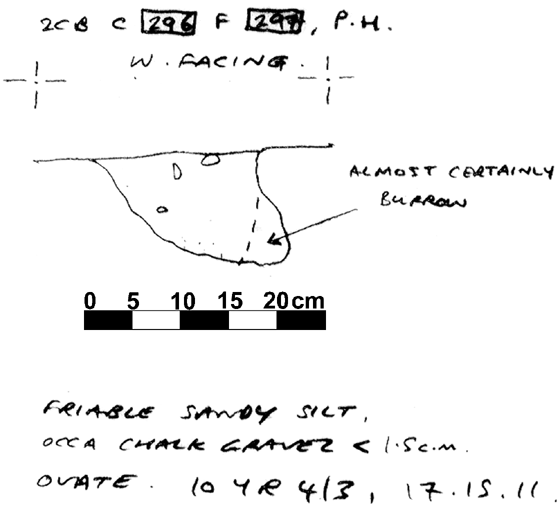 2CB C 296 F 297, P.H.
W. FACING.
ALMOST CERTAINLY
BURROW
0 5 10 15 20cm
FRIABLE SANDY SILT,
OCCA CHALK GRAVEL < 1.5c.m.
OVATE. 10 YR 4/3, 17.15.11.